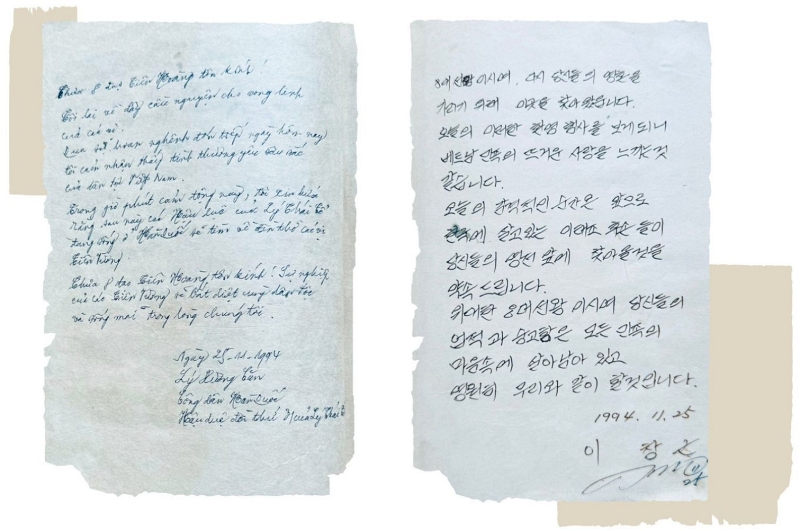 Thưa 8 đức Tiên Hoàng tôn kính!
Tôi lại về đây cầu nguyện cho vong linh
của các vị.
Qua sự hoan nghênh đón tiếp ngày hôm nay
tôi cảm nhận thấy tình thương yêu sâu sắc
của dân tộc Việt Nam.
Trong giờ phút cảm động này, tôi xin hứa
rằng sau này các Hậu duệ của Lý Thái Tổ
đang sống ở Hàn Quốc sẽ tìm về đền thờ các vị
Tiên Vương.
Thưa 8 đức Tiên Hoàng tôn kính! Sự nghiệp
của các Tiên Vương và bất diệt cùng dân tộc
và sống mãi trong lòng chúng tôi.
Ngày 25-11-1994
Lý Xương Căn
Công dân Hàn Quốc
Hậu duệ đời thứ của Lý Thái Tổ
8여 선왕이시여, 다시 당신들의 영혼을
기리기 위해 이곳을 찾아 왔습니다.
오늘의 이러한 환영 행사를 보게되니
베트남 민족의 뜨거운 사랑을 느끼는것
같습니다.
오늘의 감격적인 순간은 앞으로
한국에 살고있는 이태조 후손들이
당신들의 영전 앞에 찾아올것을
약속드립니다.
위대한 8여 선왕이시여 당신들의
업적과 숭고함은 모든 민족의
마음속에 살아남아 있고
영원히 우리와 같이 할것입니다.
1994. 11. 25
이 창 근